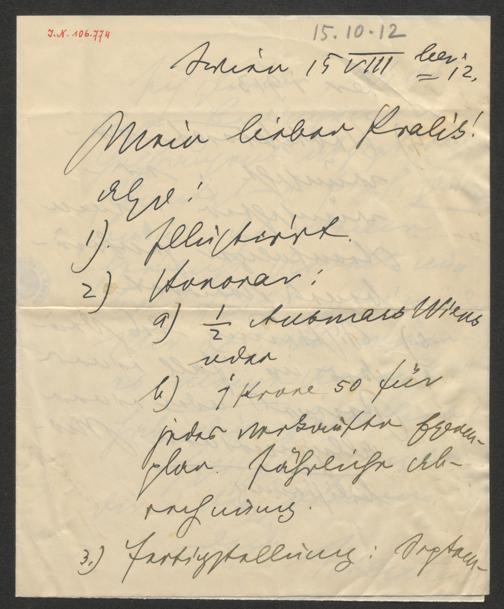 I.N. 106.774
15.10.12
Wien 15 VIII
12.
Mein lieber Kralik!
Also:
1). Illustriert.
2) Honorar:
a) 1/2 Wiens
oder
b) 1 Krone 50 für
jedes verkaufte Exem-
plar. Jährliche Ab-
rechnung.
3.) Fertigstellung: Septem-